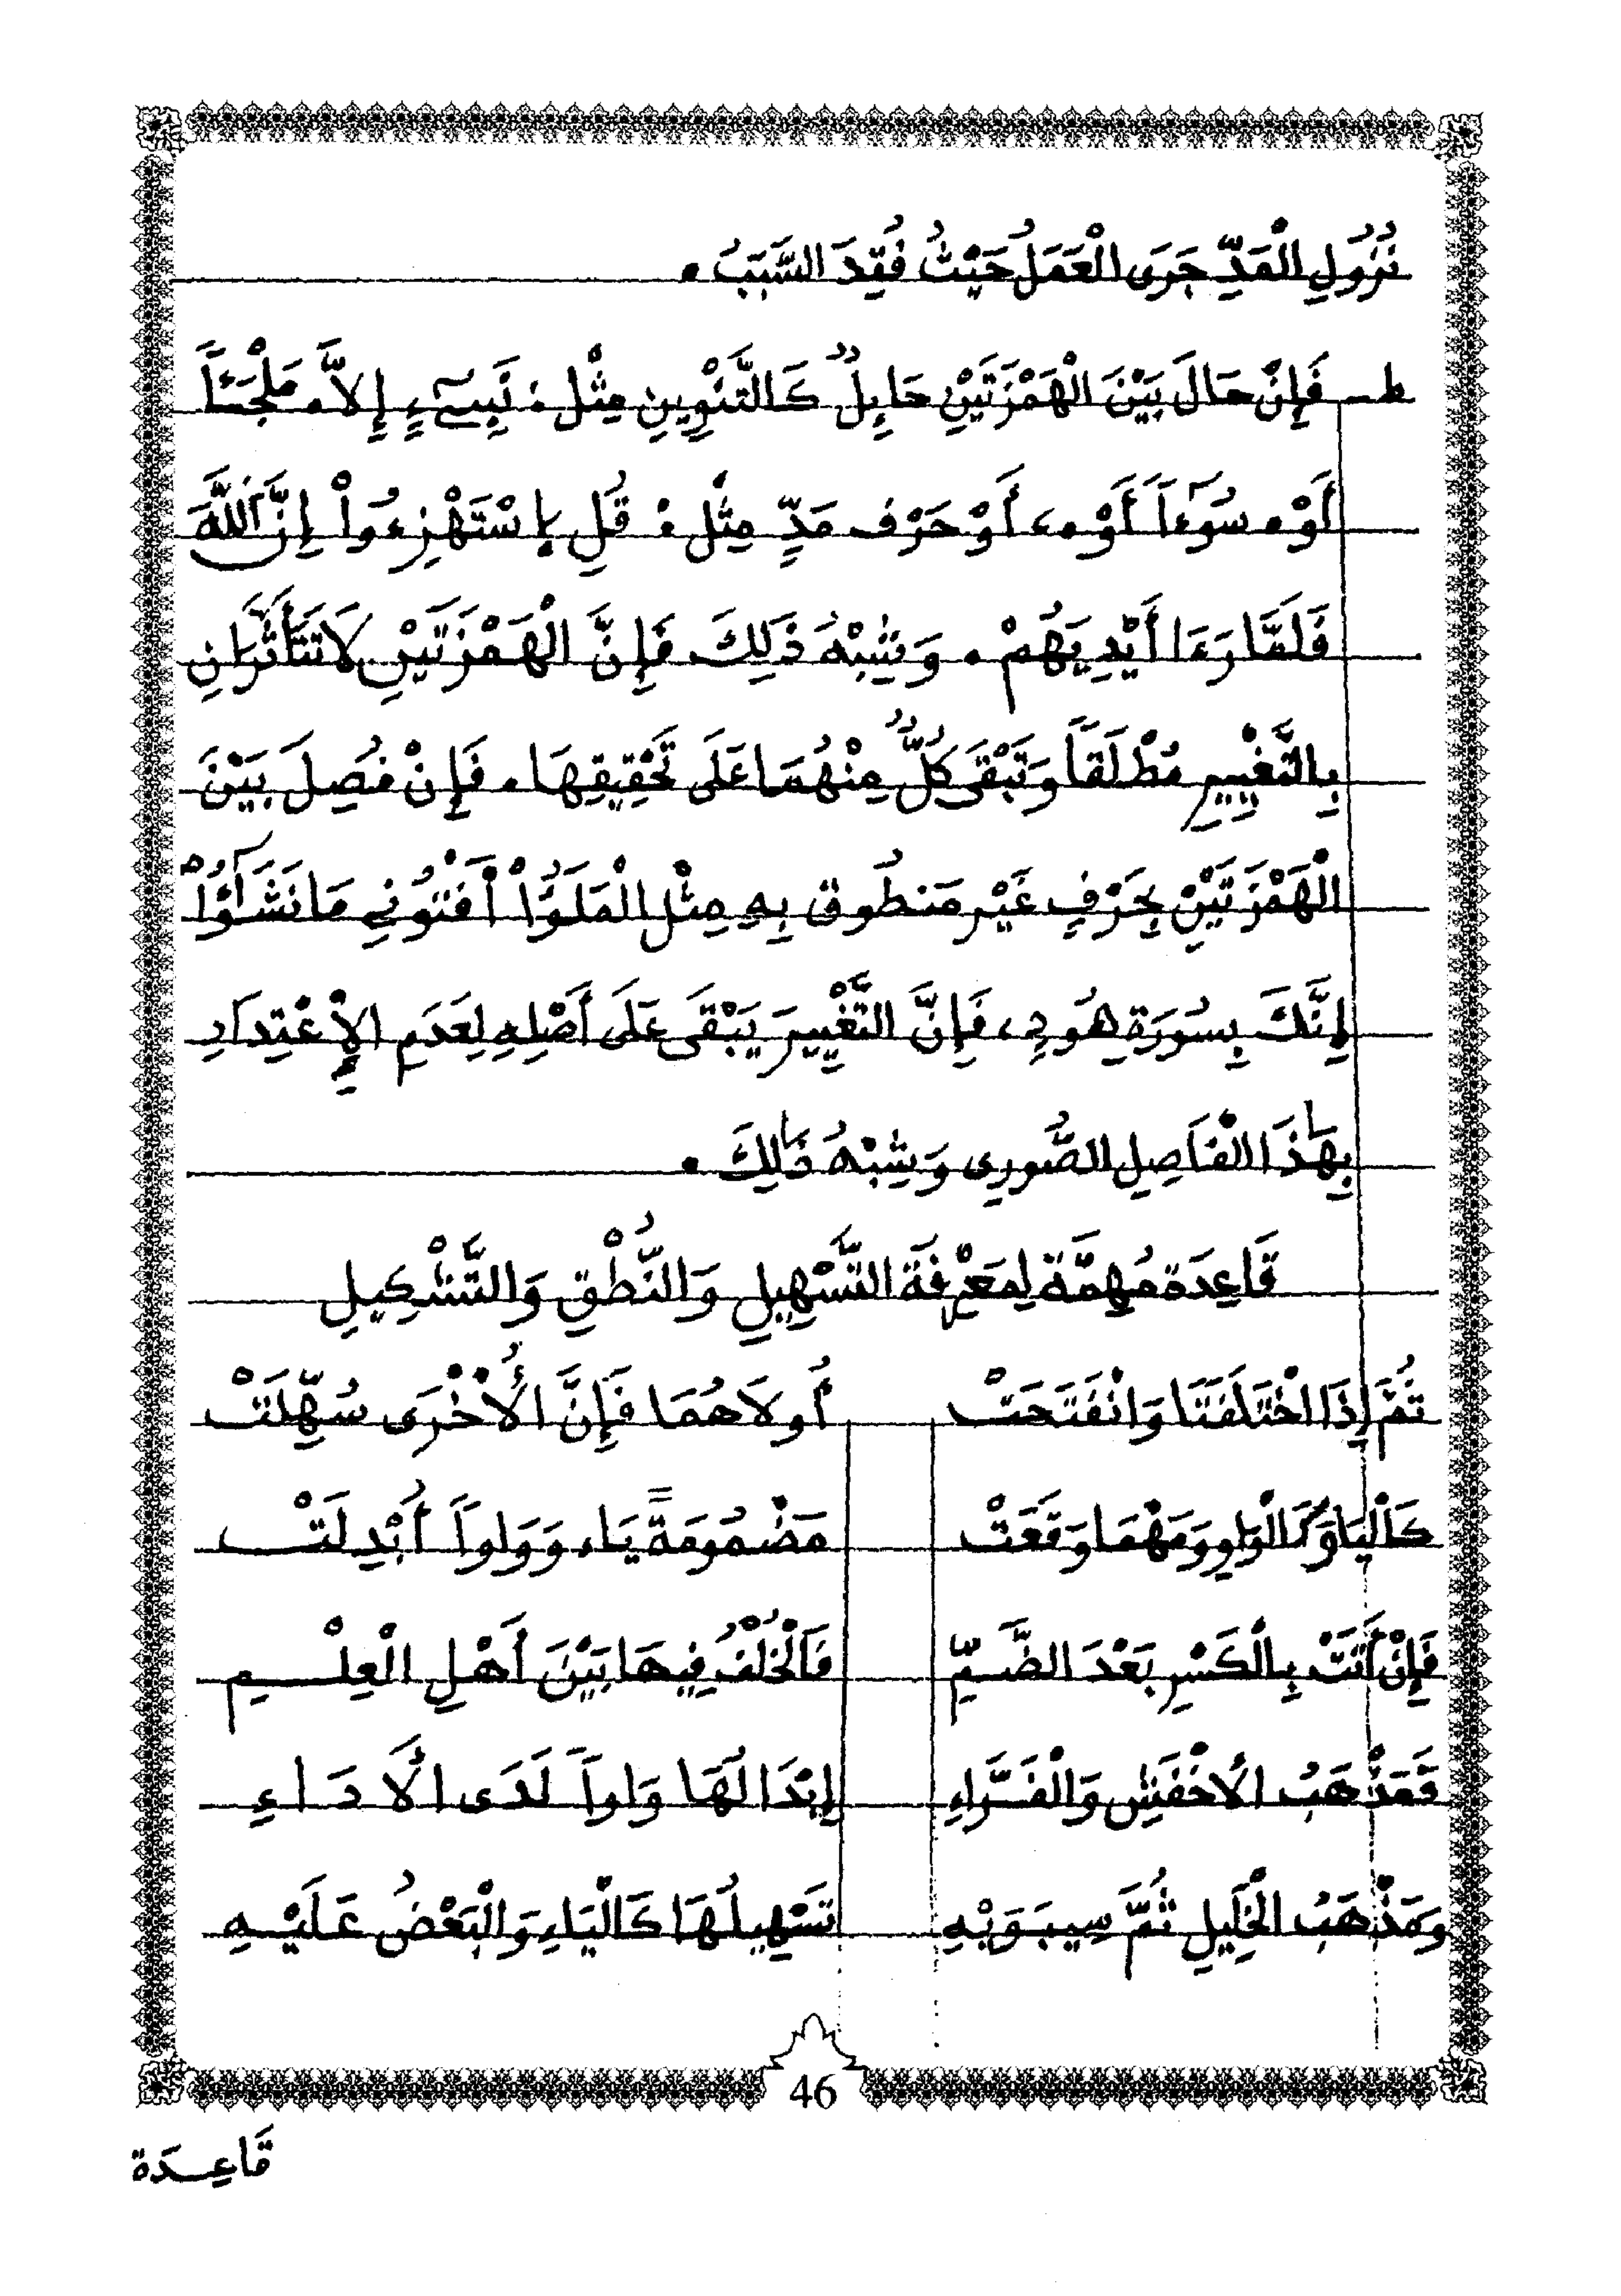 نُزُولِ الْمَدِّ جَرَى الْعَمَلُ حَيْثُ فُقِدَ السَّبَبُ .
ط - فَإِنْ حَالَ بَيْنَ الْهَمْزَتَيْنِ حَايِلٌ كَالتَّنْوِينِ مِثْل : نَبِىٓءٍ اِلاَّ . مَلْجَـًٔا
أَوْ . سُوٓءاً أَوْ . ، أَوْ حَرْف مَدٍّ مِثْل : قُلِ اِسْتَهْزِءُواْ اِنَّ اَللَّهَ
فَلَمَّا رَءَا أَيْدِيَهُمْ . وَشِبْهُ ذَلِكَ فَإِنَّ الْهَمْزَتَيْنِ لاَ تَتَأَثَّرَانِ
بِالتَّغْيِيرِ مُطْلَقاً وَتَبْقَى كُلٌّ مِنْهُمَا عَلَى تَحْقِيقِهَا . فَإِنْ فُصِلَ بَيْنَ
الْهَمْزَتَيْنِ بِحَرْفٍ غَيْر مَنطُوق بِهِ مِثْل الْمَلَؤُاْ أَفْتُونِي مَا نَشَٰٓؤُاْ
اِنَّكَ بِسُورَةِ هُودٍ ، فَإِنَّ التَّغْيِيرَ يَبْقَى عَلَى أَصْلِهِ لِعَدَمِ الاِعْتِدَادِ
بِهَٰذَا الْفَاصِلِ الصُّورِى وَشِبْهُ ذَٰلِكَ .
قَاعِدَة مُهِمَّة لِمَعْرِفَةِ التَّسْهِيلِ وَالنُّطْقِ وَالتَّشْكِيلِ
ثُمَّ إِذَا اخْتَلَفَتَا وَانْفَتَحَتْ أُولاَهُمَا فَإِنَّ الأُخْرَى سُهِّلَتْ
كَالْيَا وَكَالْوَاوِ وَمَهْمَا وَقَعَتْ مَضْمُومَةً يَاء وَوَاواً أُبْدِلَتْ
فَإِنْ أَتَتْ بِالْكَسْرِ بَعْدَ الضَّمِّ فَالْخُلْفُ فِيهَا بَيْنَ أَهْلِ الْعِلْمِ
فَمَذْهَبُ الأَخْفَشِ وَالْفَرَّاءِ إِبْدَالُهَا وَاواً لَدَى الأَدَاءِ
وَمَذْهَبُ الْخَلِيلِ ثُمَّ سِيبَوَيْهِ تَسْهِيلُهَا كَالْيَاءِ وَالْبَعْضُ عَلَيْهِ
46
قَاعِدَة